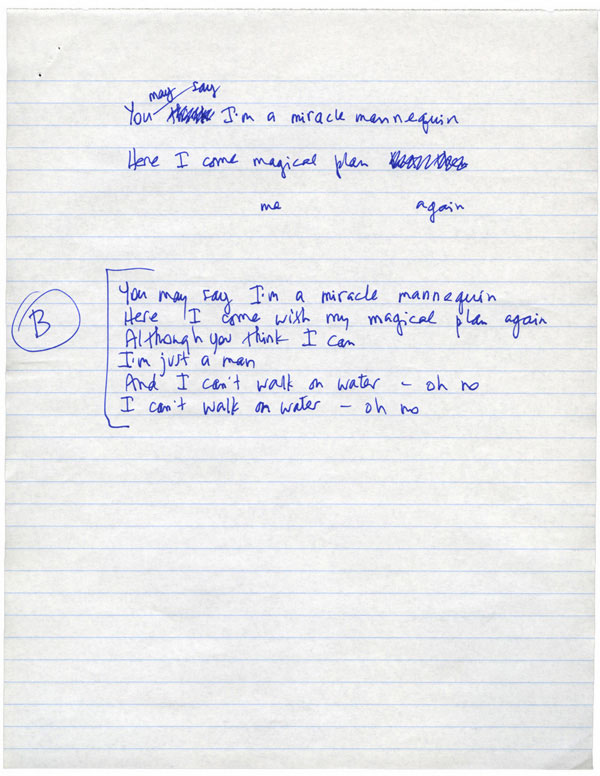 may say
You I'm a miracle mannequin
Here I come magical plan
me again
You may say I'm a miracle mannequin
Here I come with my magical plan again
Although you think I can
I'm just a man
B
And I can't walk on water – oh no
I can't walk on water – oh no